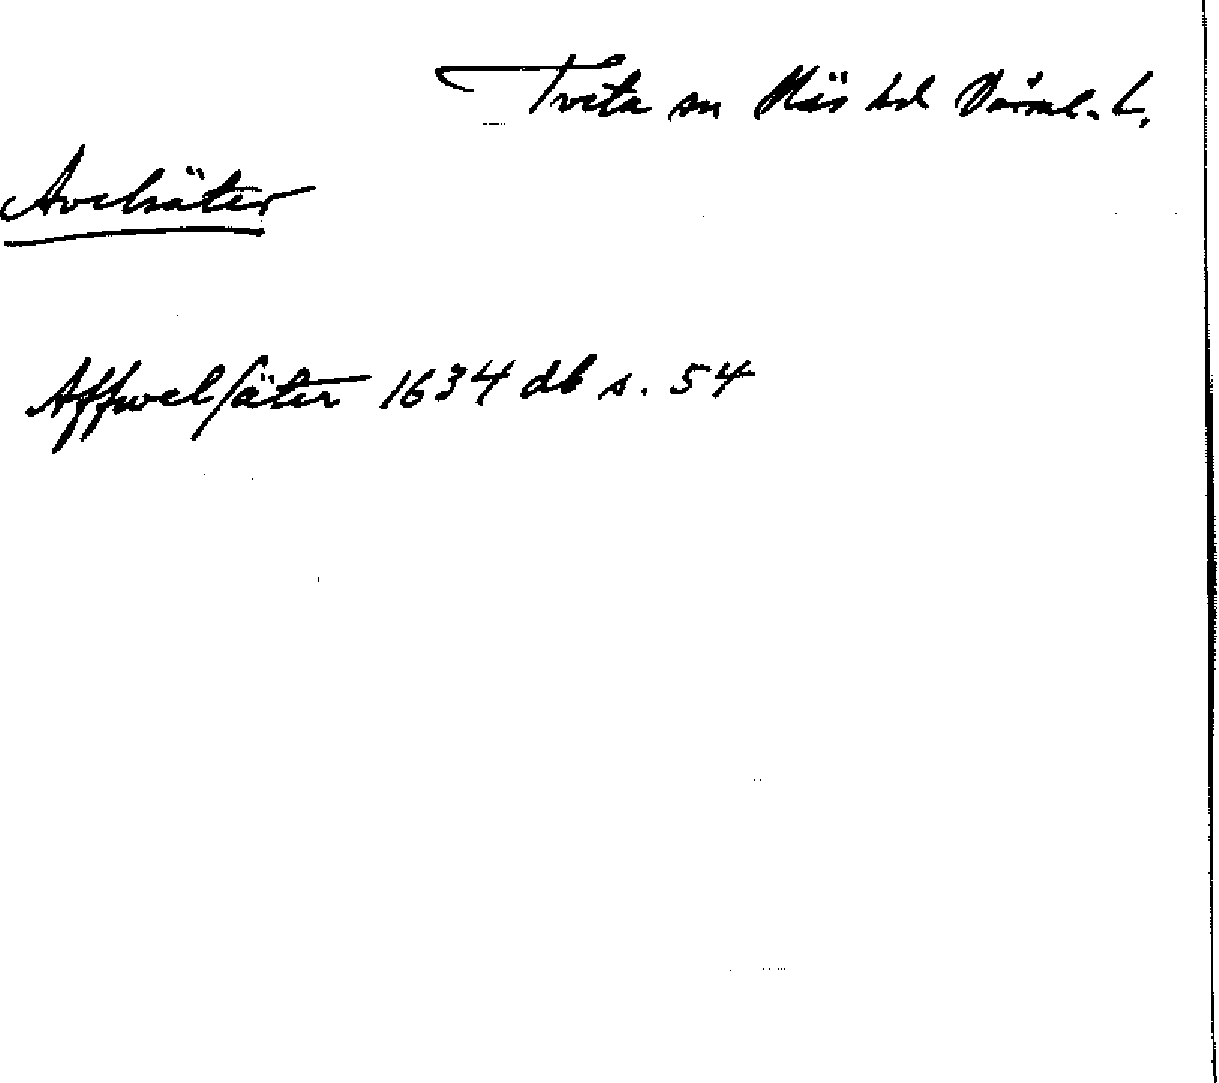 Tveta sn Näs hd Värml. l.
Avelsäter
Affwelsäter 1634 db s. 54